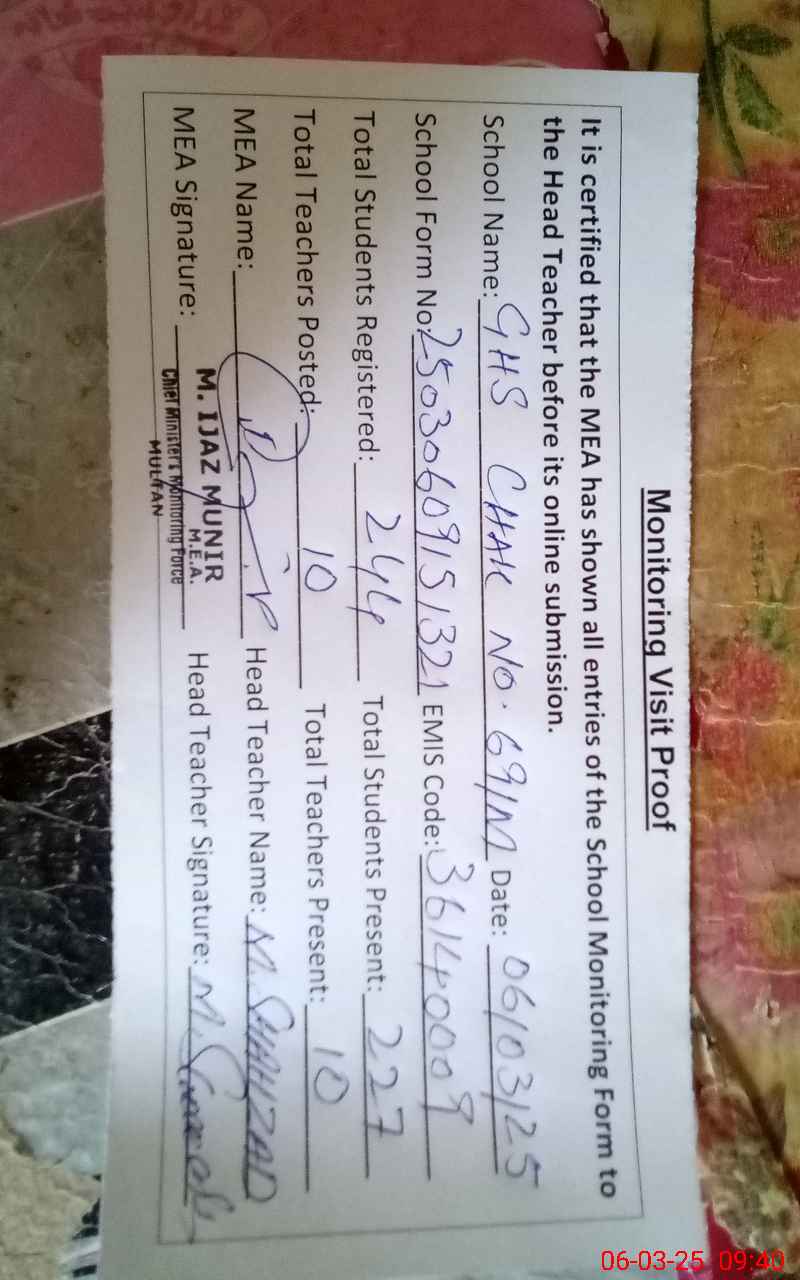 Monitoring Visit Proof
It is certified that the MEA has shown all entries of the School Monitoring Form to
the Head Teacher before its online submission.
School Name: GHS CHAK NO. 69/M Date: 06/03/25
School Form No: 25030609151321 EMIS Code: 36140009
Total Students Registered: 244 Total Students Present: 227
Total Teachers Posted: 10 Total Teachers Present: 10
MEA Name: Head Teacher Name: M. SHAHZAD
MEA Signature: Head Teacher Signature:
M. IJAZ MUNIR
M.E.A.
Chief Minister's Monitoring Force
MULTAN
06-03-25 09:40